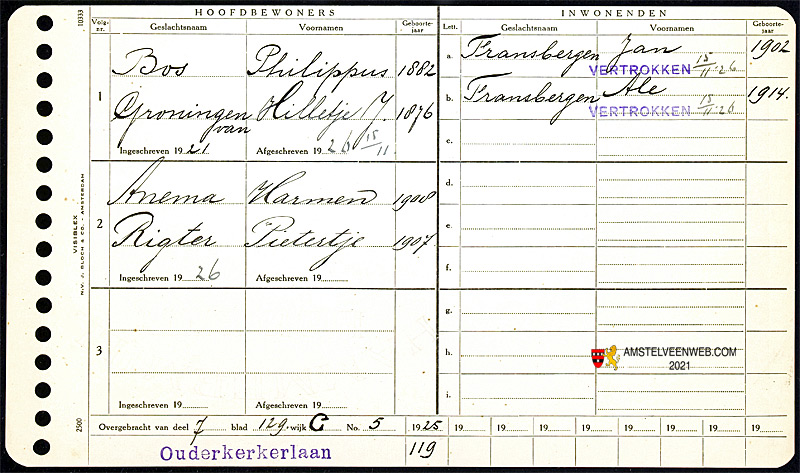 HOOFDBEWONERS
INWONENDEN
Volg-nr.
Geslachtsnaam
Voornamen
Geboorte-jaar
Lett.
Geslachtsnaam
Voornamen
Geboorte-jaar
10333
VISIBLEX
N.V. J. BLOCH & CO. - AMSTERDAM
2500
1
Bos Philippus 1882
Groningen van Hilletje J. 1876
Ingeschreven 1921 Afgeschreven 1926 15/11
2
Anema Harmen 1908
Rigter Pietertje 1907
Ingeschreven 1926 Afgeschreven 19
3
Ingeschreven 19 Afgeschreven 19
a. Fransbergen Jan 1902
VERTROKKEN 15/11-26
b. Fransbergen Ale 1914.
VERTROKKEN 15/11-26
c.
d.
e.
f.
g.
h.
i.
AMSTELVEENWEB.COM
2021
Overgebracht van deel 7 blad 129 wijk C No. 5 1925 19 19 19 19 19 19 19 19
Ouderkerkerlaan 119